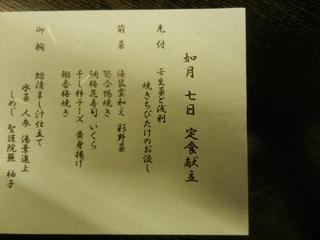 如月 七日 定食献立
先付 壬生菜と浅利
焼きちびたけのお浸し
前菜 海鼠雲和え 彩野菜
筍合鴨焼き
胡桃花寿司 いくら
干し柿チーズ 黄身揚げ
鰯香梅焼き
御椀 蛤清まし汁仕立て
水菜 人参 湯葉進上
しめじ 聖護院蕪 柚子